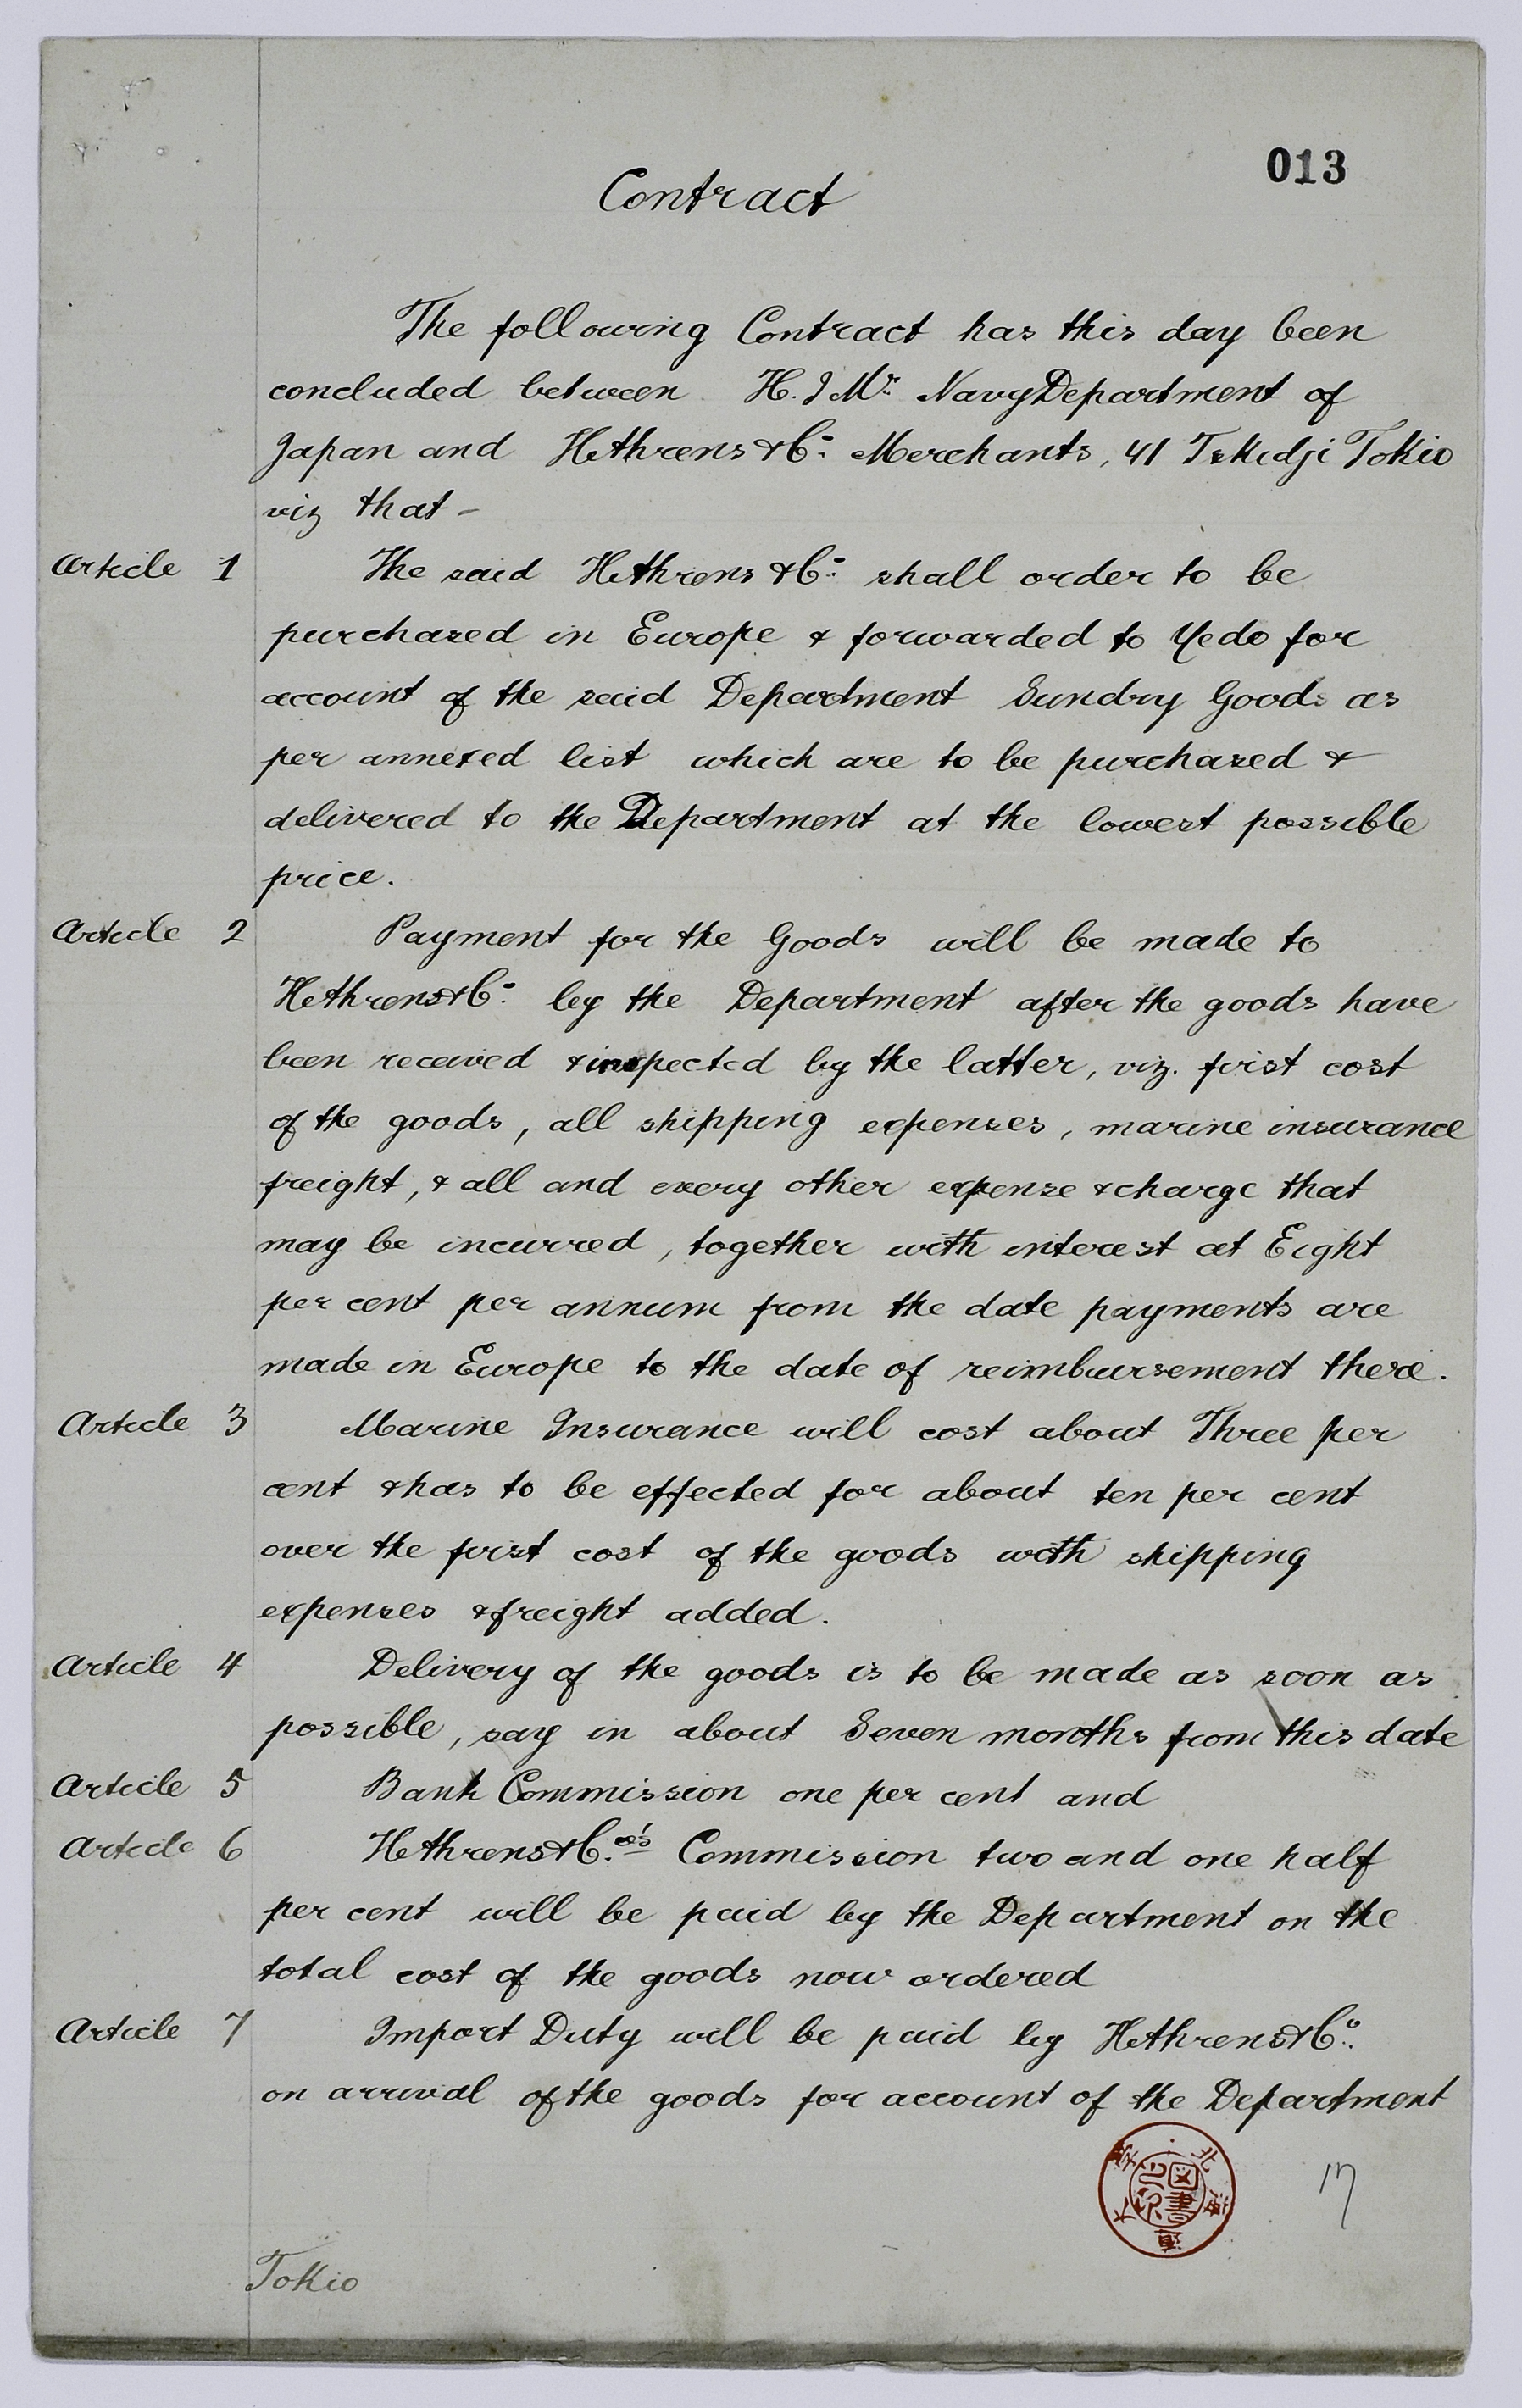 013
Contract
The following Contract has this day been
concluded between H. I. M's Navy Department of
Japan and H. Ahrens & Co. Merchants, 41 Tskidji Tokio
viz that -
Article 1 The said H. Ahrens & Co. shall order to be
purchased in Europe & forwarded to Yedo for
account of the said Department Sundry Goods as
per annexed list which are to be purchased &
delivered to the Department at the lowest possible
price.
Article 2 Payment for the Goods will be made to
H. Ahrens & Co. by the Department after the goods have
been received & inspected by the latter, viz. first cost
of the goods, all shipping expenses, marine insurance
freight, & all and every other expense & charge that
may be incurred, together with interest at Eight
per cent per annum from the date payments are
made in Europe to the date of reimbursement there.
Article 3 Marine Insurance will cost about Three per
cent & has to be effected for about ten per cent
over the first cost of the goods with shipping
expenses & freight added.
Article 4 Delivery of the goods is to be made as soon as
possible, say in about Seven months from this date
Article 5 Bank Commission one per cent and
Article 6 H. Ahrens & Co.'s Commission two and one half
per cent will be paid by the Department on the
total cost of the goods now ordered
Article 7 Import Duty will be paid by H. Ahrens & Co.
on arrival of the goods for account of the Department
北海道大学
図書之印
17
Tokio